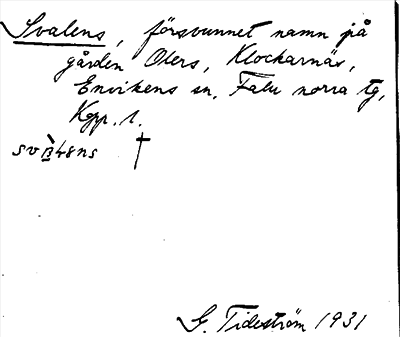 Svalens, försvunnet namn på
gården Olers, Klockarnäs,
Envikens sn. Falu norra tg,
Kopp. l.
†
G. Tideström 1931